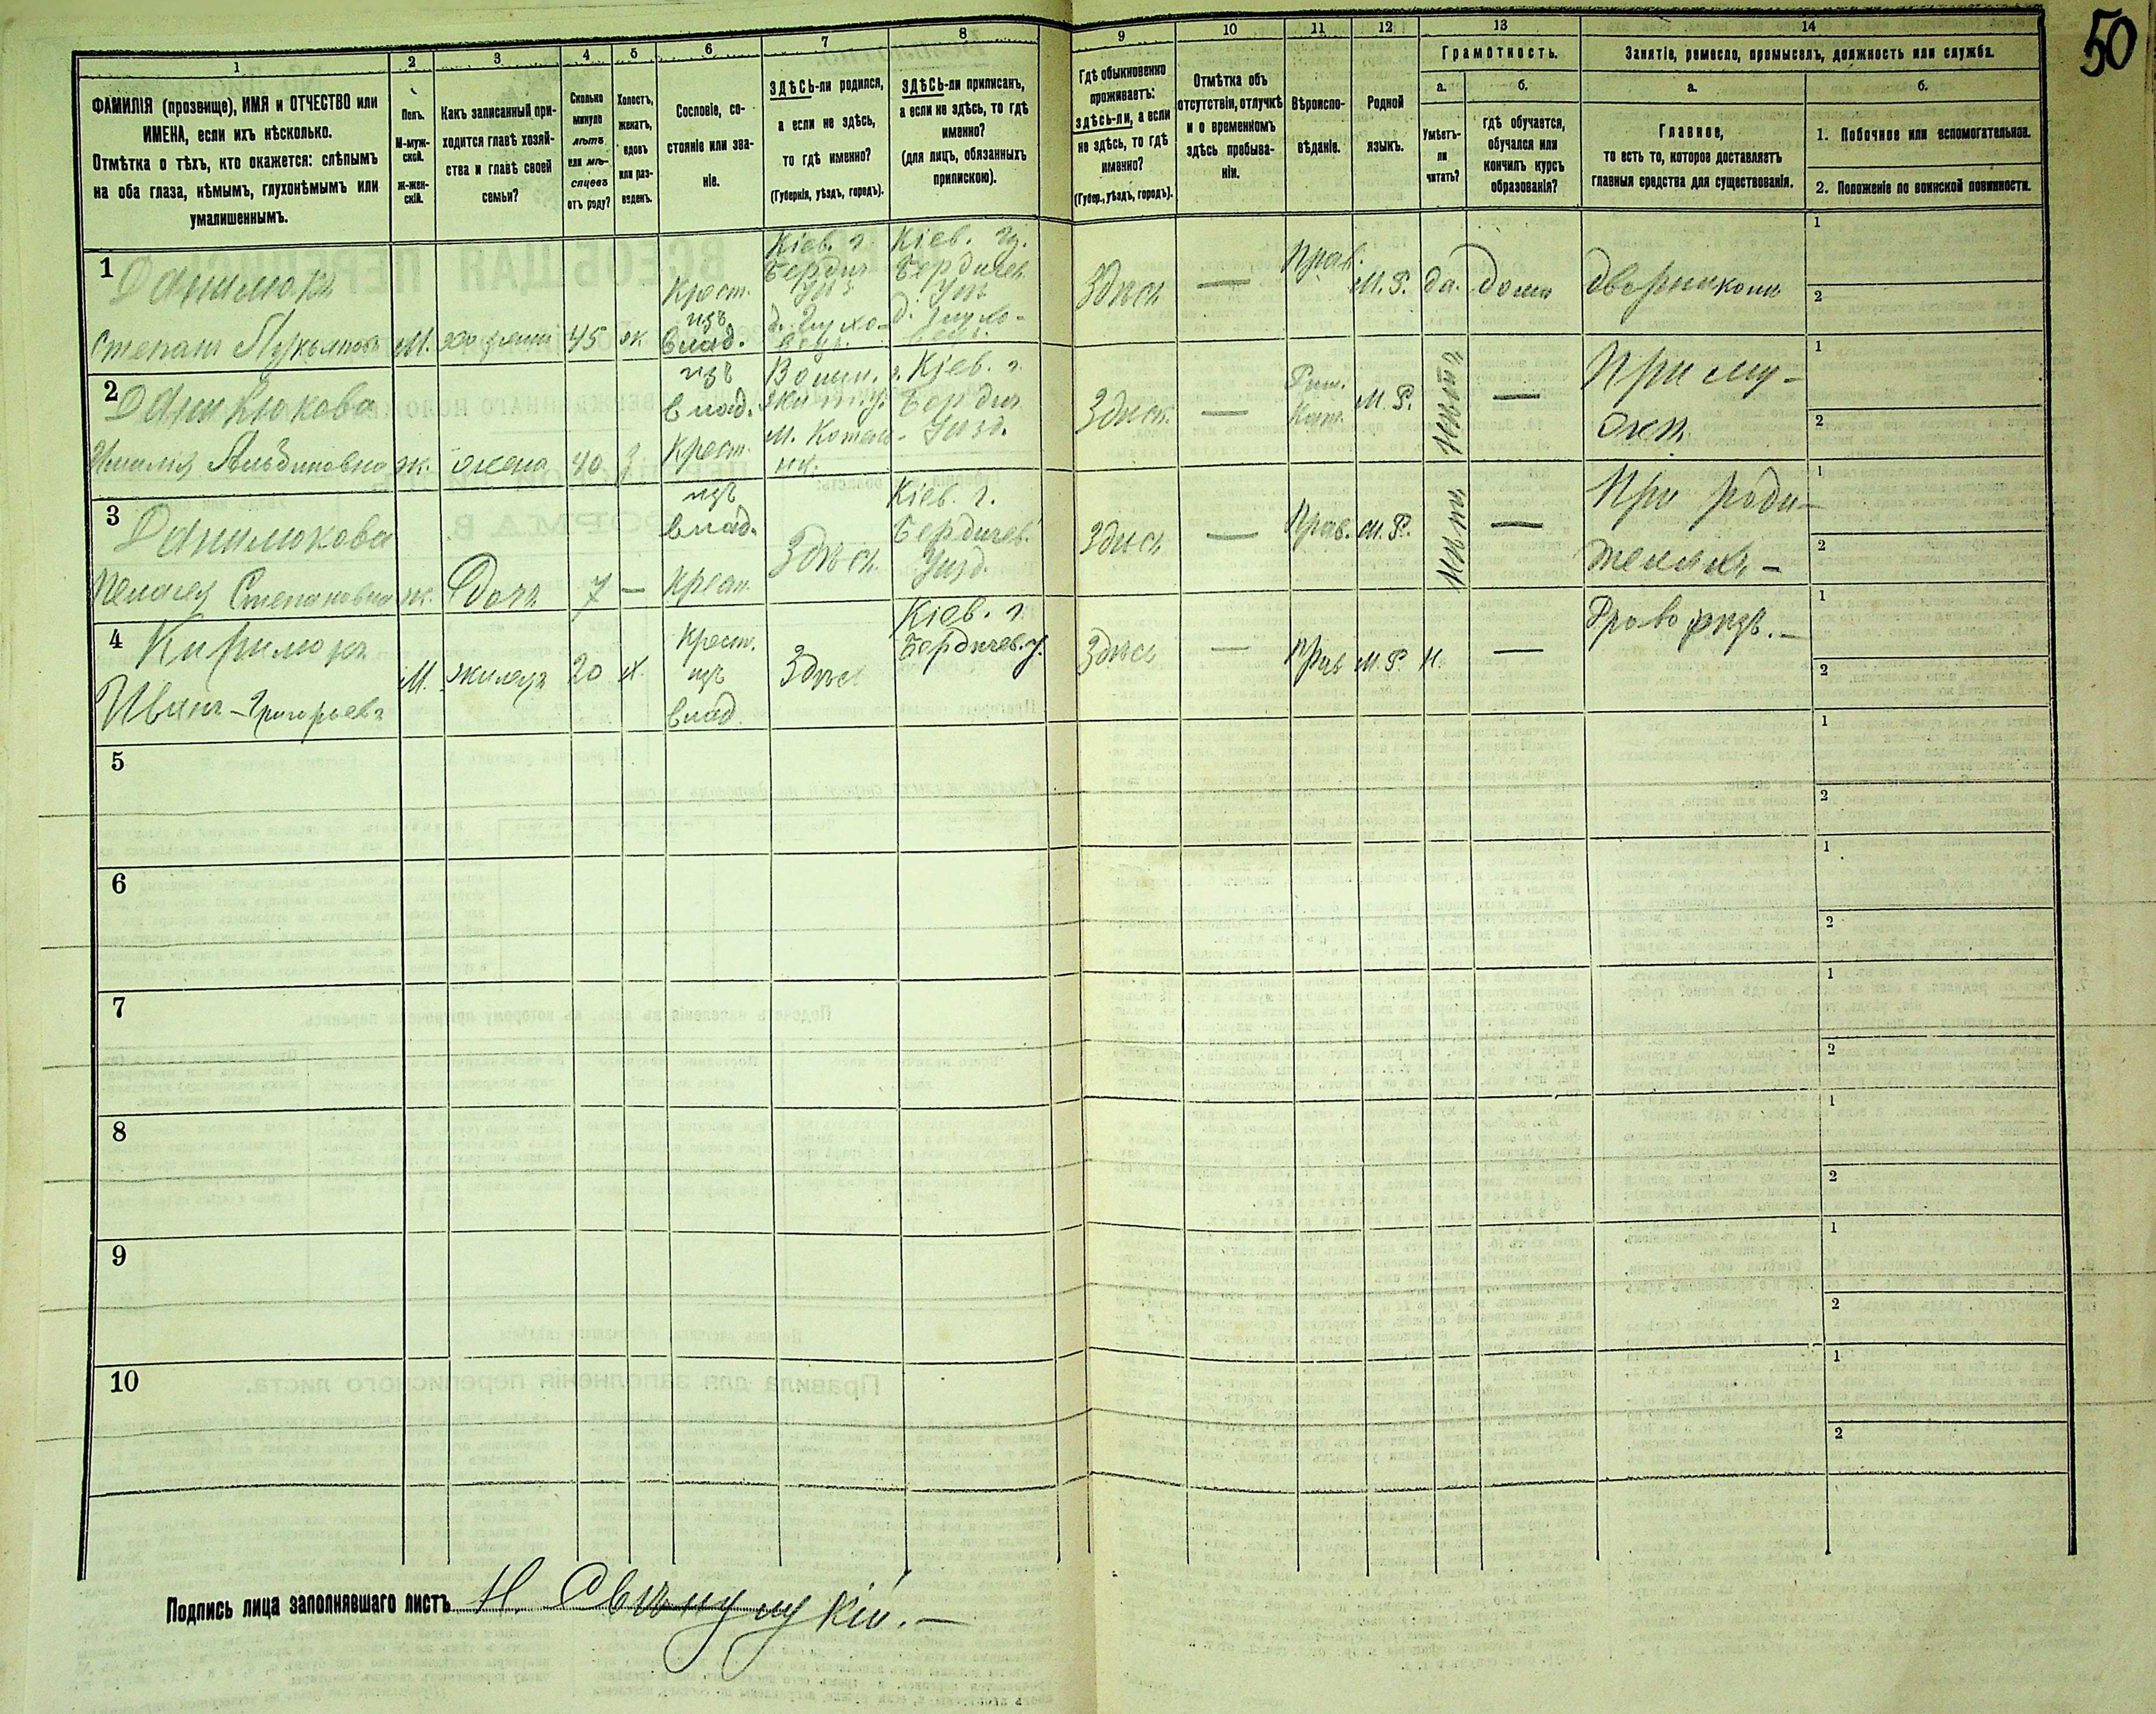 50
1 2 3 4 5 6 7 8 9 10 11 12 13 14
ФАМИЛІЯ (прозвище), ИМЯ и ОТЧЕСТВО или
ИМЕНА, если ихъ нѣсколько.
Отмѣтка о тѣхъ, кто окажется: слѣпымъ
на оба глаза, нѣмымъ, глухонѣмымъ или
умалишеннымъ.
Полъ.
М-муж-
ской.
Ж-жен-
скій.
Какъ записанный при-
ходится главѣ хозяй-
ства и главѣ своей
семьи?
Сколько
минуло
лѣтъ
или мѣ-
сяцевъ
отъ роду?
Холостъ,
женатъ,
вдовъ
или раз-
веденъ.
Сословіе, со-
стояніе или зва-
ніе.
ЗДѢСЬ-ли родился,
а если не здѣсь,
то гдѣ именно?
(Губернія, уѣздъ, городъ).
ЗДѢСЬ-ли приписанъ,
а если не здѣсь, то гдѣ
именно?
(для лицъ, обязанныхъ
припискою).
Гдѣ обыкновенно
проживаетъ:
здѣсь-ли, а если
не здѣсь, то гдѣ
именно?
(Губер., уѣздъ, городъ).
Отмѣтка объ
отсутствіи, отлучкѣ
и о временномъ
здѣсь пребыва-
ніи.
Вѣроиспо-
вѣданіе.
Родной
языкъ.
Грамотность.
а.
Умѣетъ-
ли
читать?
б.
гдѣ обучается,
обучался или
кончилъ курсъ
образованія?
Занятіе, ремесло, промыселъ, должность или служба.
а.
Главное,
то есть то, которое доставляетъ
главныя средства для существованія.
б.
1. Побочное или вспомогательное.
2. Положеніе по воинской повинности.
1
Данилюкъ
Степанъ Лукьяновъ
М.
45
ж
Крест.
изъ
влад.
Кіев. г.
Бердич.
Кіев. гу.
Бердичев.
Здѣсь
—
Прав.
М. Р.
да.
дома
дворникомъ
2
Данилюкова
ж. жена 40 з
изъ
влад.
Крест.
Волын. г.
Кіев. г.
Бердич.
Уѣзд.
Здѣсь
—
Рим.
Кат.
М. Р.
—
При му-
жѣ
3
Данилюкова
Степановна
ж. Дочь 7 —
изъ
влад.
Крест.
Здѣсь
Кіев. г.
Бердичев.
Уѣзд.
Здѣсь
—
Прав. М. Р.
—
При роди-
теляхъ —
4
Кирилюкъ
Иванъ - Григорьевъ
М. жилецъ 20 х.
Крест.
изъ
влад.
Здѣсь
Кіев. г.
Бердичев. у.
Здѣсь
—
Прав М. Р. Н.
—
5
6
7
8
9
10
Подпись лица заполнявшаго листъ